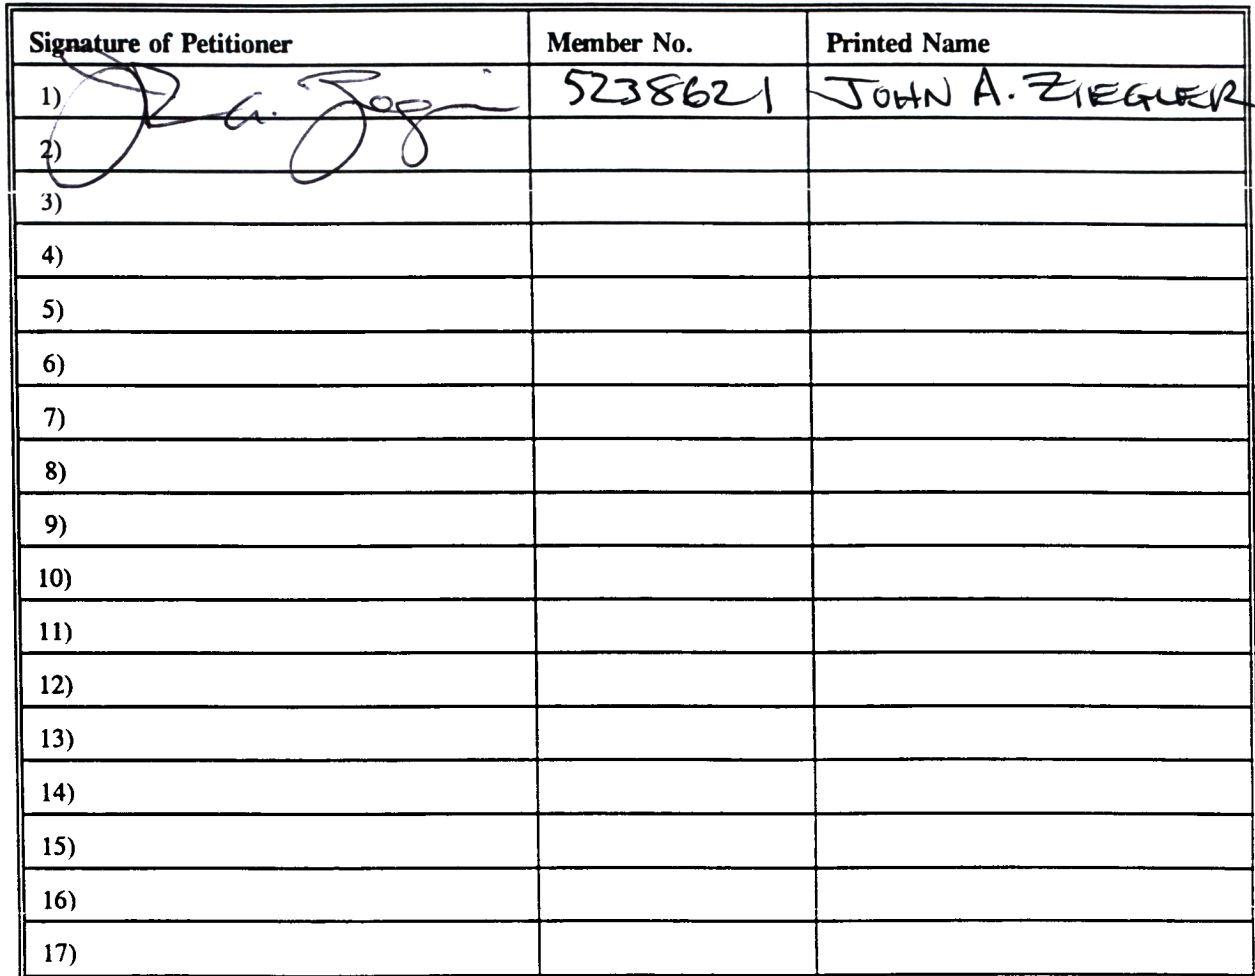 Signature of Petitioner Member No. Printed Name
1) 5238621 JOHN A. ZIEGLER
2)
3)
4)
5)
6)
7)
8)
9)
10)
11)
12)
13)
14)
15)
16)
17)